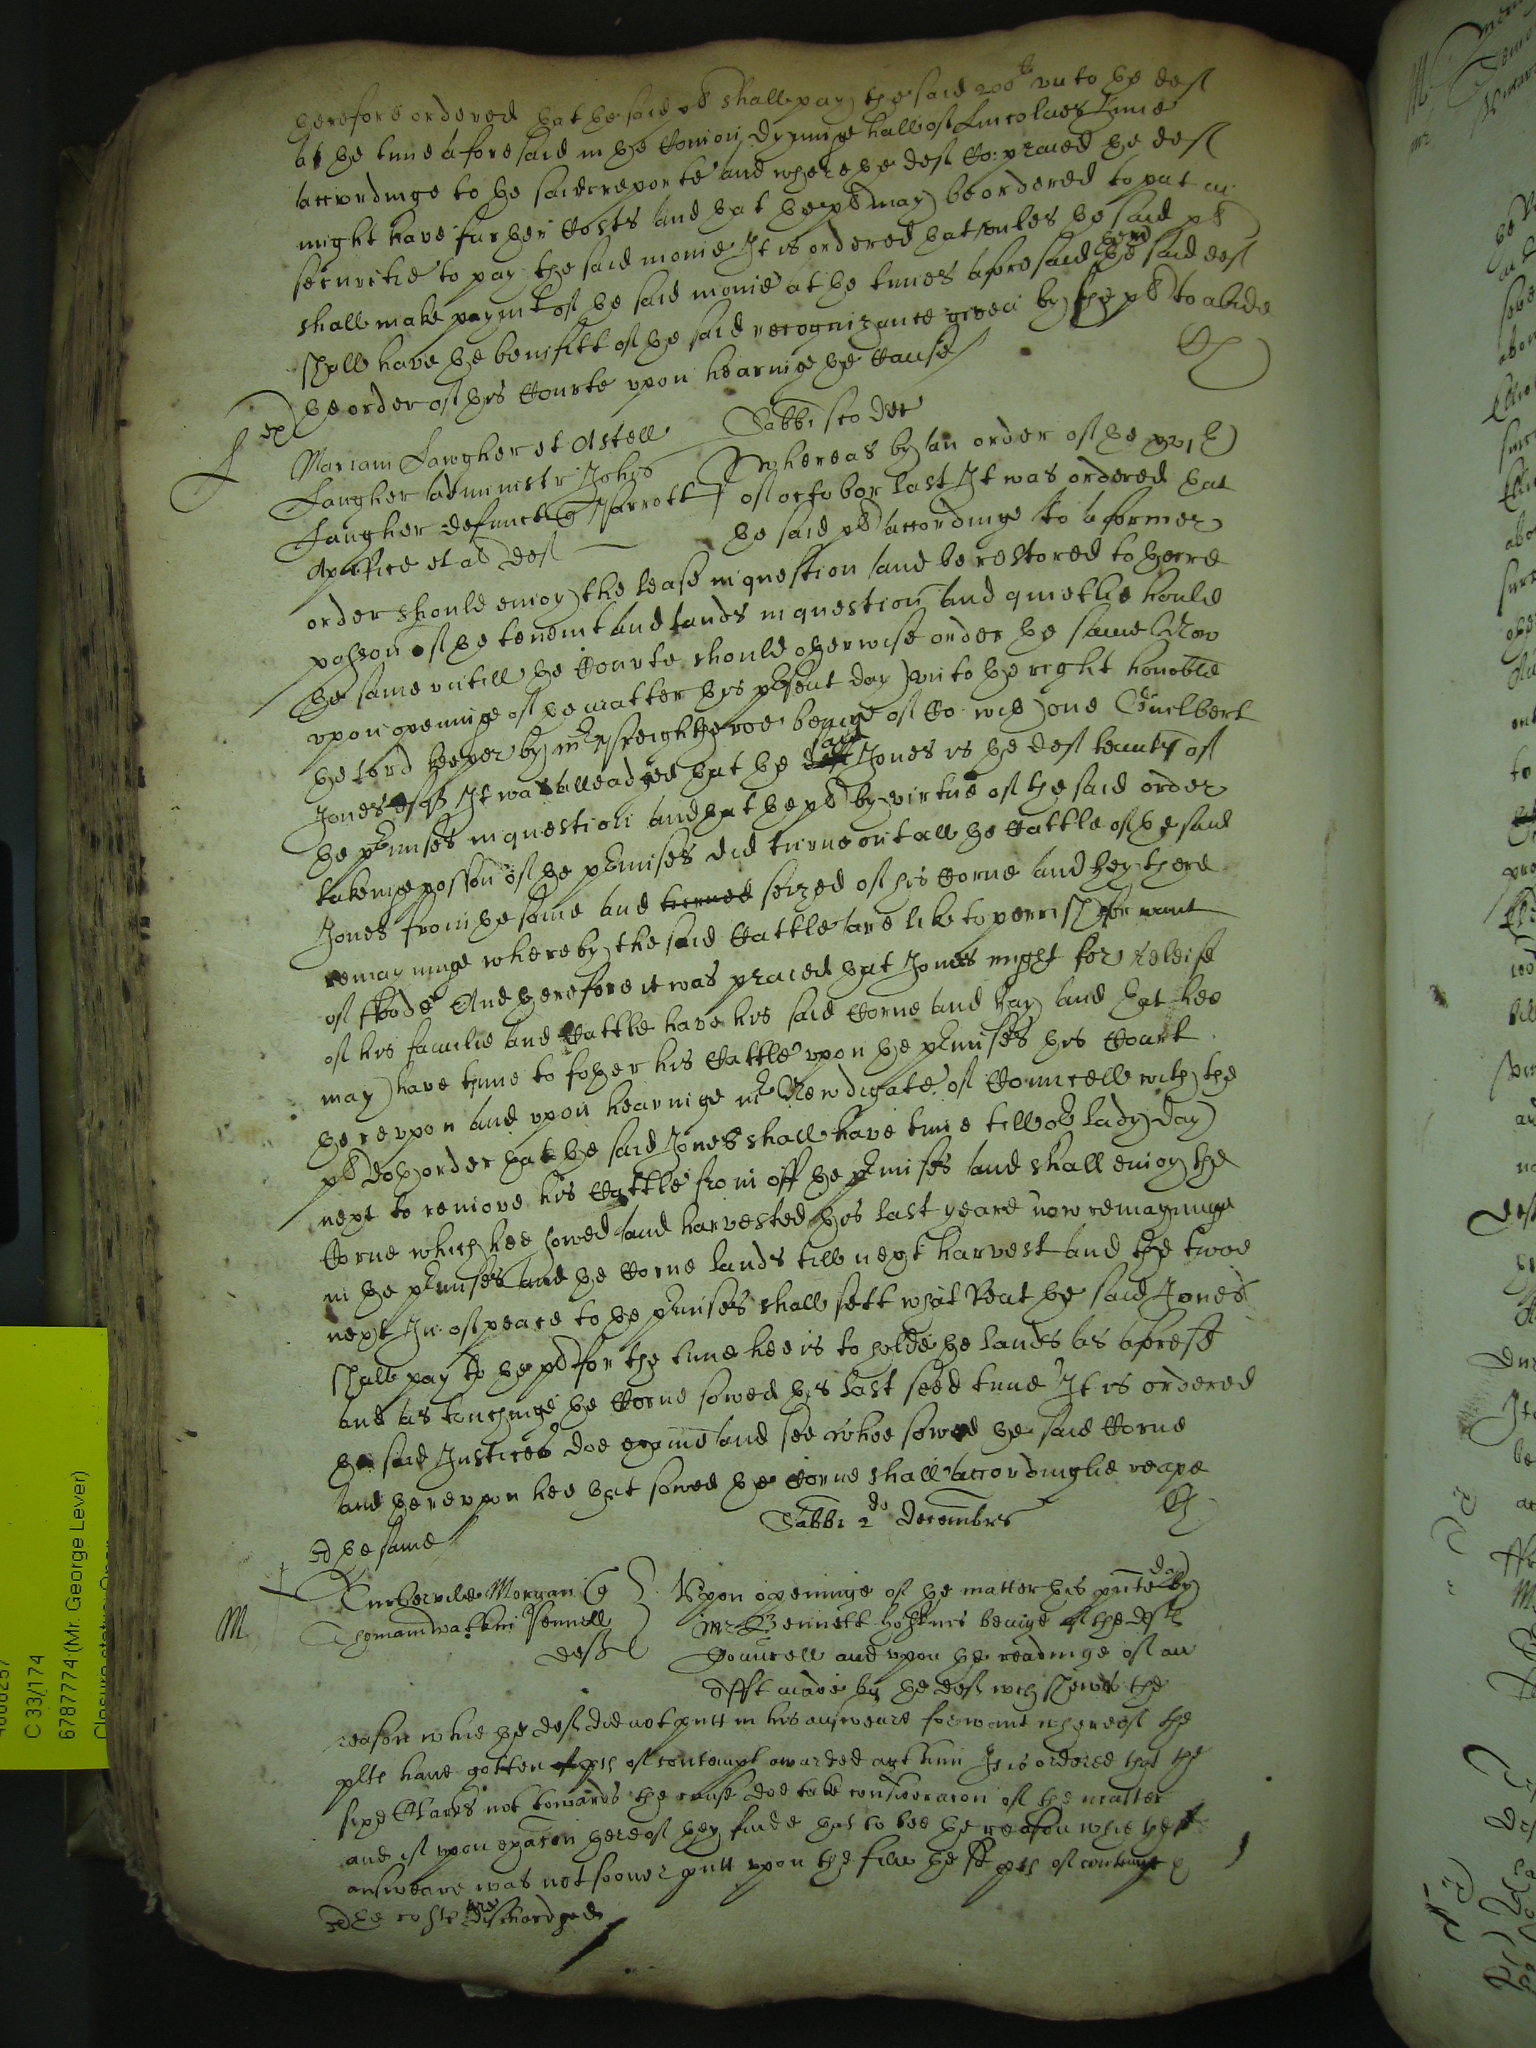 therefore ordered that the said pl shall pay the said 200li unto the deft
at the time aforesaid in the Comon dyninge hall of Lincolnes Inne
accordinge to the said reporte and where the deft Co: praied the deft
might have further Costs and that the pl may be ordered to put in
securitie to pay the said monie It is ordered that unles the said pl
shall make paymt of the said monie at the times aforesaid then the said deft
shall have the benifitt of the said recognizance given by the pl to abide
the order of this Courte upon hearinge the Cause
Sabbi scdo die
Mariam Laugher et Astell
Laugher administr Johis Whereas by an order of the xxvith
Laugher defuncti Jarrott of october last It was ordered that
Aprfice et al deft the said pl accordinge to a former
order should enioy the lease in question and be restored to theire
possion of the tenemt and lands in question and quietlie hould
the same untill the Courte should otherwise order the same Now
upon openinge of the matter this psent day unto the right honoble
the lord keeper by mr beinge of Co: wth one Guilbert
Jones esqr It was alleadged that the said Jones is the deft tennt of
the pmises in question and that the pl by virtue of the said order
takeinge possion of the pmises did turne out all the Cattle of the said
Jones from the same and turned seized of his Corne and hey there
remayninge whereby the said Cattle are like to perrish for want
of foode And therefore it was praied that Jones might for releife
of his familie and Cattle have his said Corne and hay and that hee
may have tyme to fother his Cattle upon the pmises this Court
thereupon and upon hearinge mr Newdigate of Councell with the
pl doth order that the said Jones shall have time till or lady day
next to remove his Cattle from off the pmises and shall enioy the
Corne which hee sowed and harvested this last yeare now remayninge
in the pmises and the Corne lands till next harvest and the twoe
next Ju: of peace to the pmises shall sett what Rent the said Jones
shall pay to the pl for the time hee is to holde the lands as aforesd
and as touchinge the Corne sowed this last seede time It is ordered
the said Justices doe examine and see whoe sowed the said Corne
and thereupon hee that sowed the Corne shall accordinglie reape
the same
Sabbi 2do decembris
M
Turbervile Morgan Upon openinge of the matter this pnte day by
Thomam Watkin Pennell mr Bennett Hoskins beinge of the defts
deft Councell and upon the readinge of an
Afft made by the deft wch shewes the
reason whie the deft did not putt in his answeare for want whereof the
plts have gotten pces of contempt awarded agt him It is ordered that the
sixe Clarks not towards the cause doe take consideracon of the matter
and if upon exacon thereof they finde that to bee the reason whie the
answeare was not sooner putt upon the file the sd pces of contempt
dischardged
C 33/174
6787774 (Mr. George Lever)